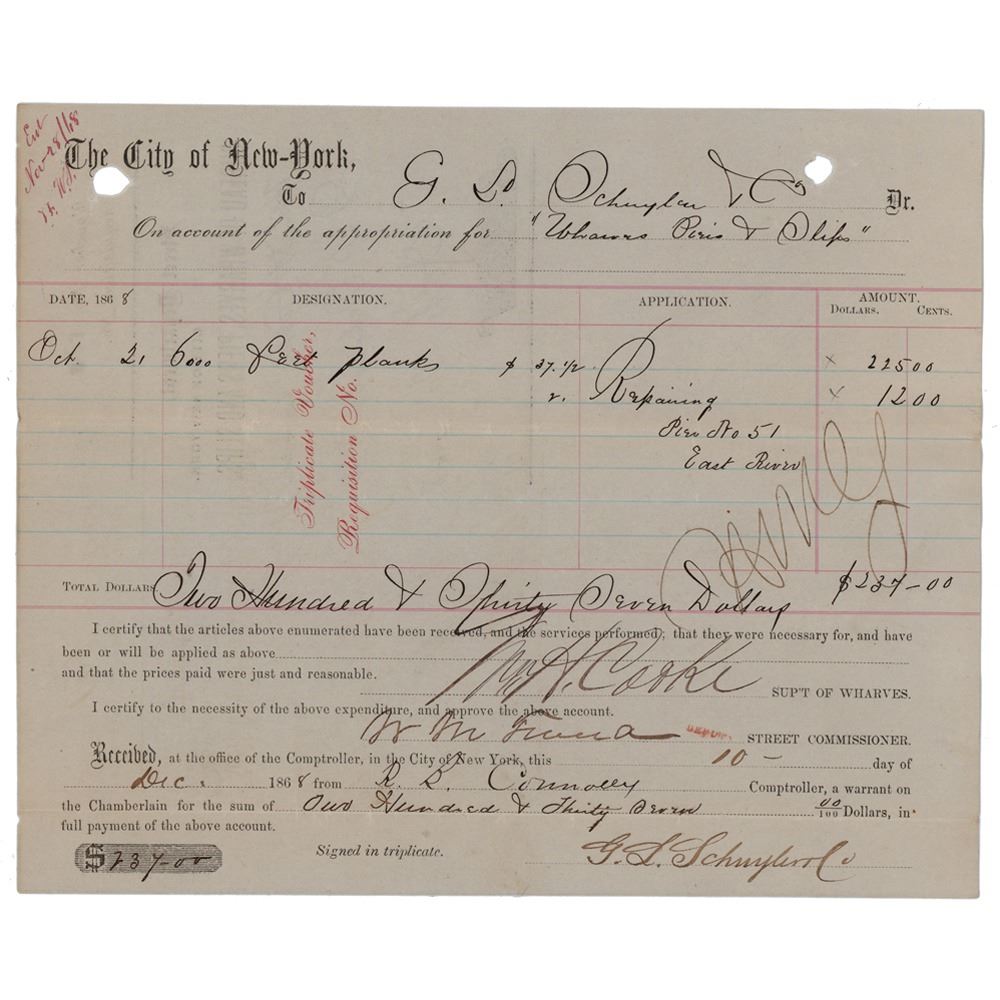 Ent
Nov 28/68
The City of New-York,
To G. L. Schuyler & Co Dr.
On account of the appropriation for "Wharves Piers & Slips"
DATE, 1868 DESIGNATION. APPLICATION. AMOUNT.
DOLLARS. CENTS.
Oct. 21 6000 feet planks $ 37.1/2 Repairing x 225 00
2. x 12 00
Pier No 51
East River
Triplicate Voucher,
Requisition No.
TOTAL DOLLARS Two Hundred & Thirty Seven Dollars $237-00
I certify that the articles above enumerated have been received, and the services performed; that they were necessary for, and have
been or will be applied as above
and that the prices paid were just and reasonable.
W. H. Cooke SUP'T OF WHARVES.
I certify to the necessity of the above expenditure, and approve the above account.
DEPUTY. STREET COMMISSIONER.
Received, at the office of the Comptroller, in the City of New York, this 10- day of
Dec. 1868 from R. B. Connolly Comptroller, a warrant on
the Chamberlain for the sum of Two Hundred & Thirty Seven 00/100 Dollars, in
full payment of the above account.
$237-00 Signed in triplicate. G. L. Schuyler & Co